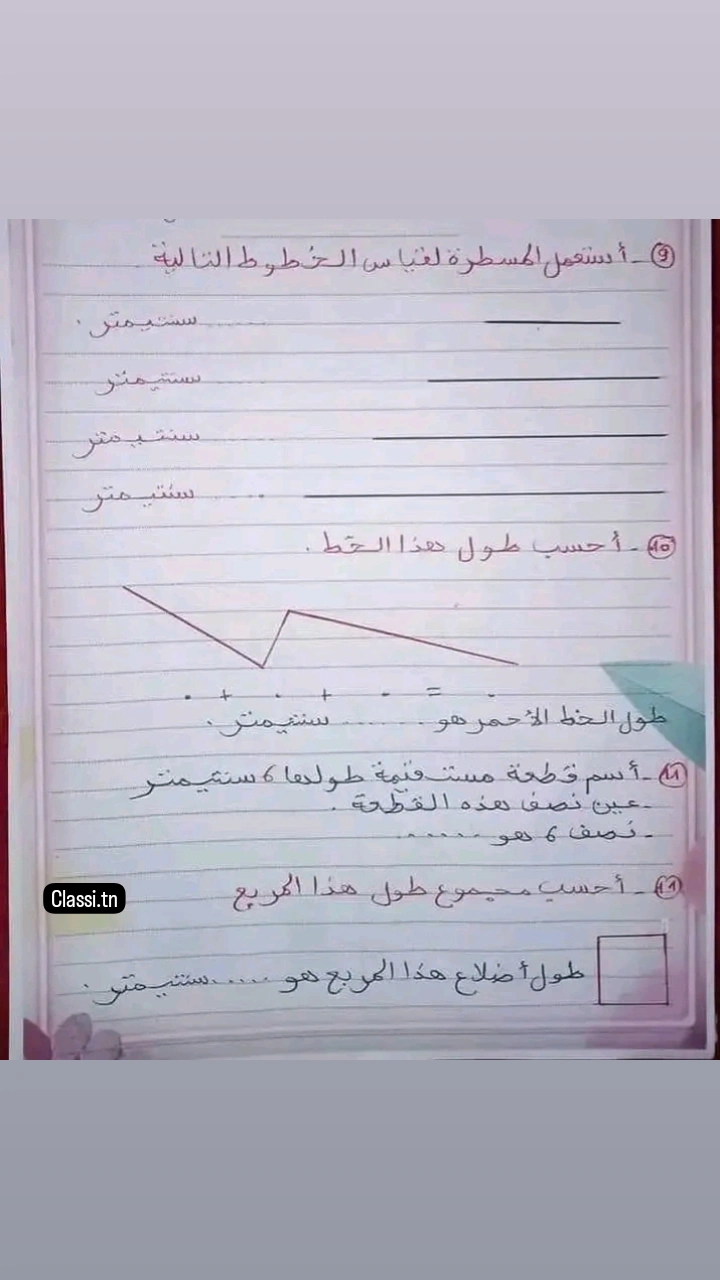 9 - أستعمل المسطرة لقياس الخطوط التالية
...... سنتيمتر .
...... سنتيمتر
...... سنتيمتر
...... سنتيمتر
10 - أحسب طول هذا الخط .
. + . + . = .
طول الخط الأحمر هو ........ سنتيمتر .
11 - أسم قطعة مستقيمة طولها 6 سنتيمتر
- عين نصف هذه القطعة .
- نصف 6 هو ......
Classi.tn
- أحسب مجموع طول هذا المربع
طول أضلاع هذا المربع هو ...... سنتيمتر .